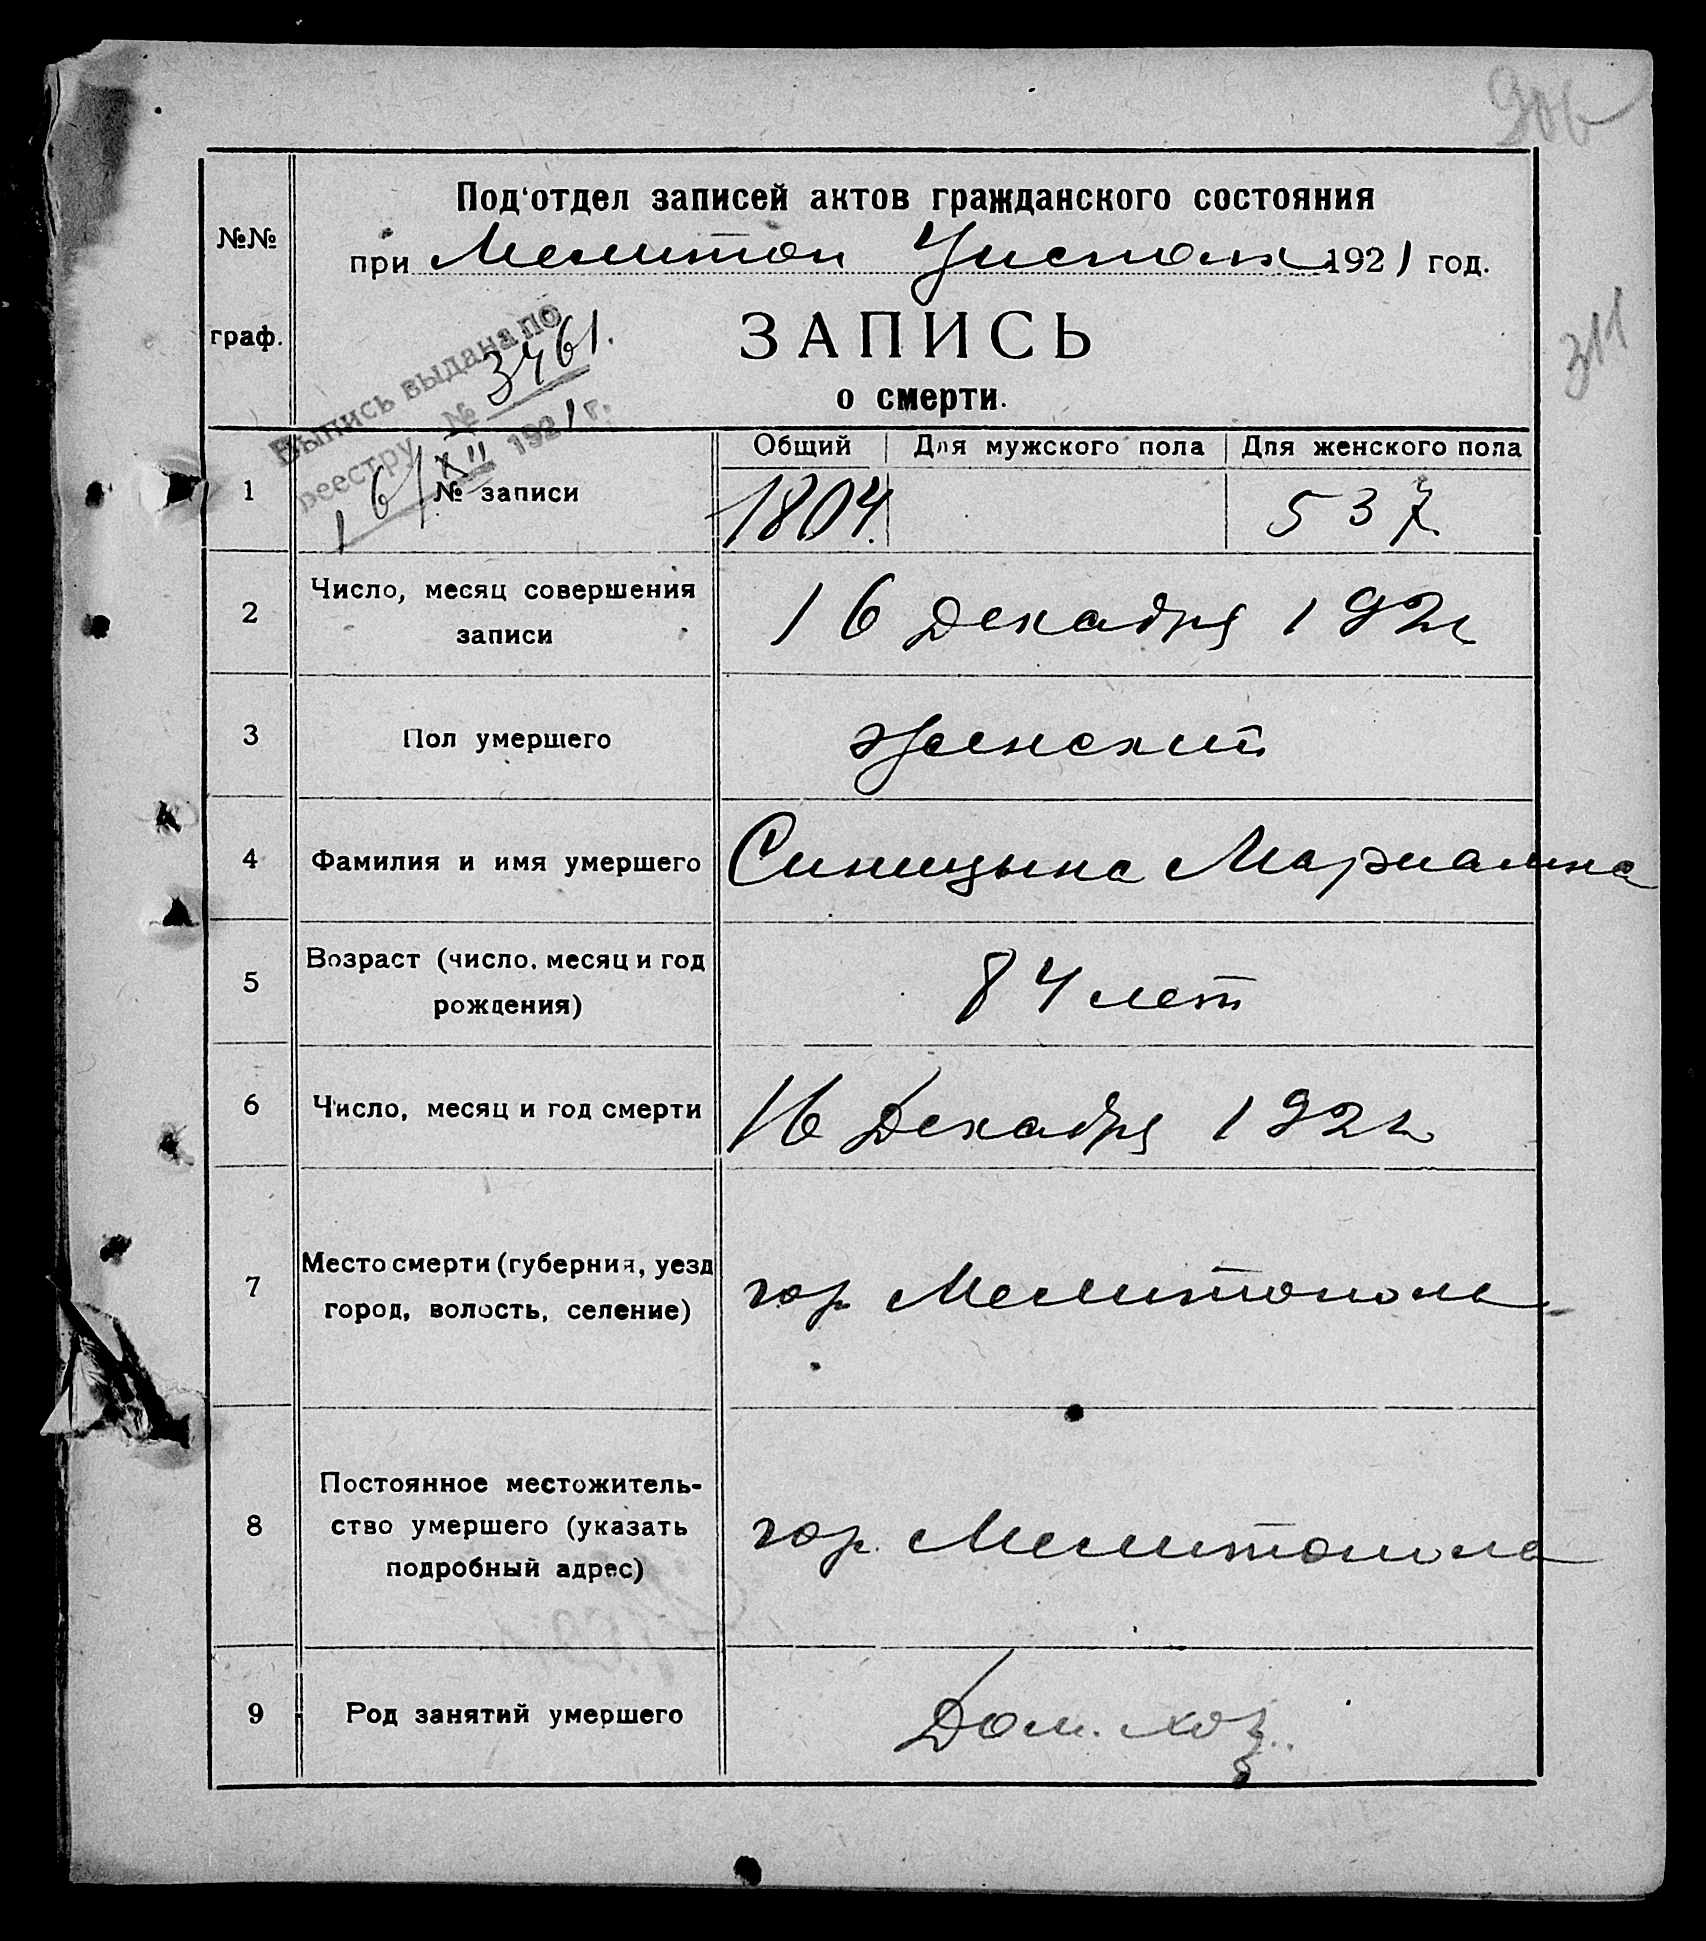 306
Под'отдел записей актов гражданского состояния
№№
при Мелитоп Уисполк 1921 год.
311
граф.
ЗАПИСЬ
о смерти.
Выпись выдана по
реестру № 3461.
16/XII 1921 г.
Общий Для мужского пола Для женского пола
1 № записи 1804. 537
2 Число, месяц совершения
записи
16 Декабря 1921
3 Пол умершего женский
4 Фамилия и имя умершего Синицына Марианна
5 Возраст (число, месяц и год
рождения)
84 лет
6 Число, месяц и год смерти 16 Декабря 1921
7 Место смерти (губерния, уезд
город, волость, селение)
гор. Мелитополь
8 Постоянное местожитель-
ство умершего (указать
подробный адрес)
гор. Мелитополь
9 Род занятий умершего Дом. хоз.